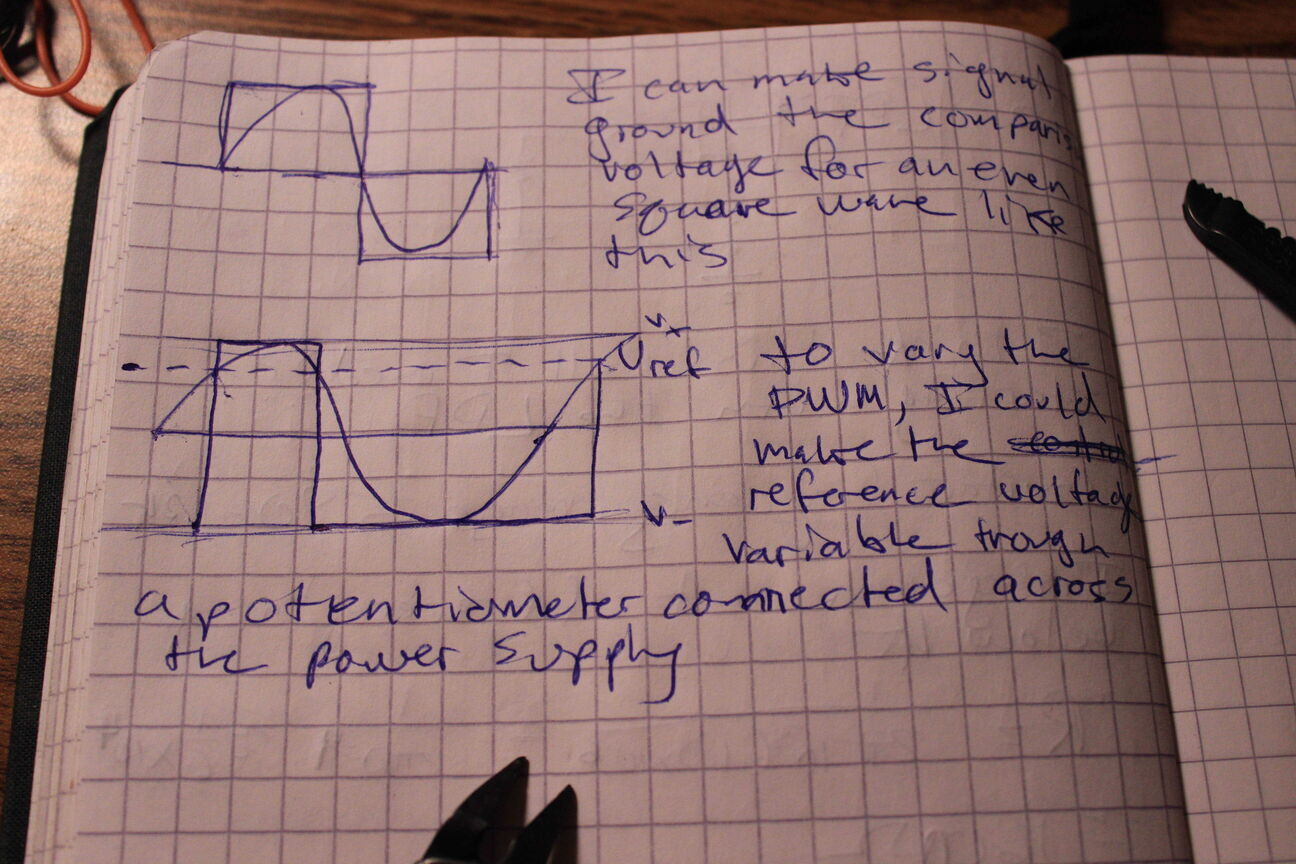 I can make signal
ground the comparis
voltage for an even
square wave like
this
V+
Vref
to vary the
PWM, I could
make the
reference voltage
V-
variable trough
a potentiometer connected across
the power supply